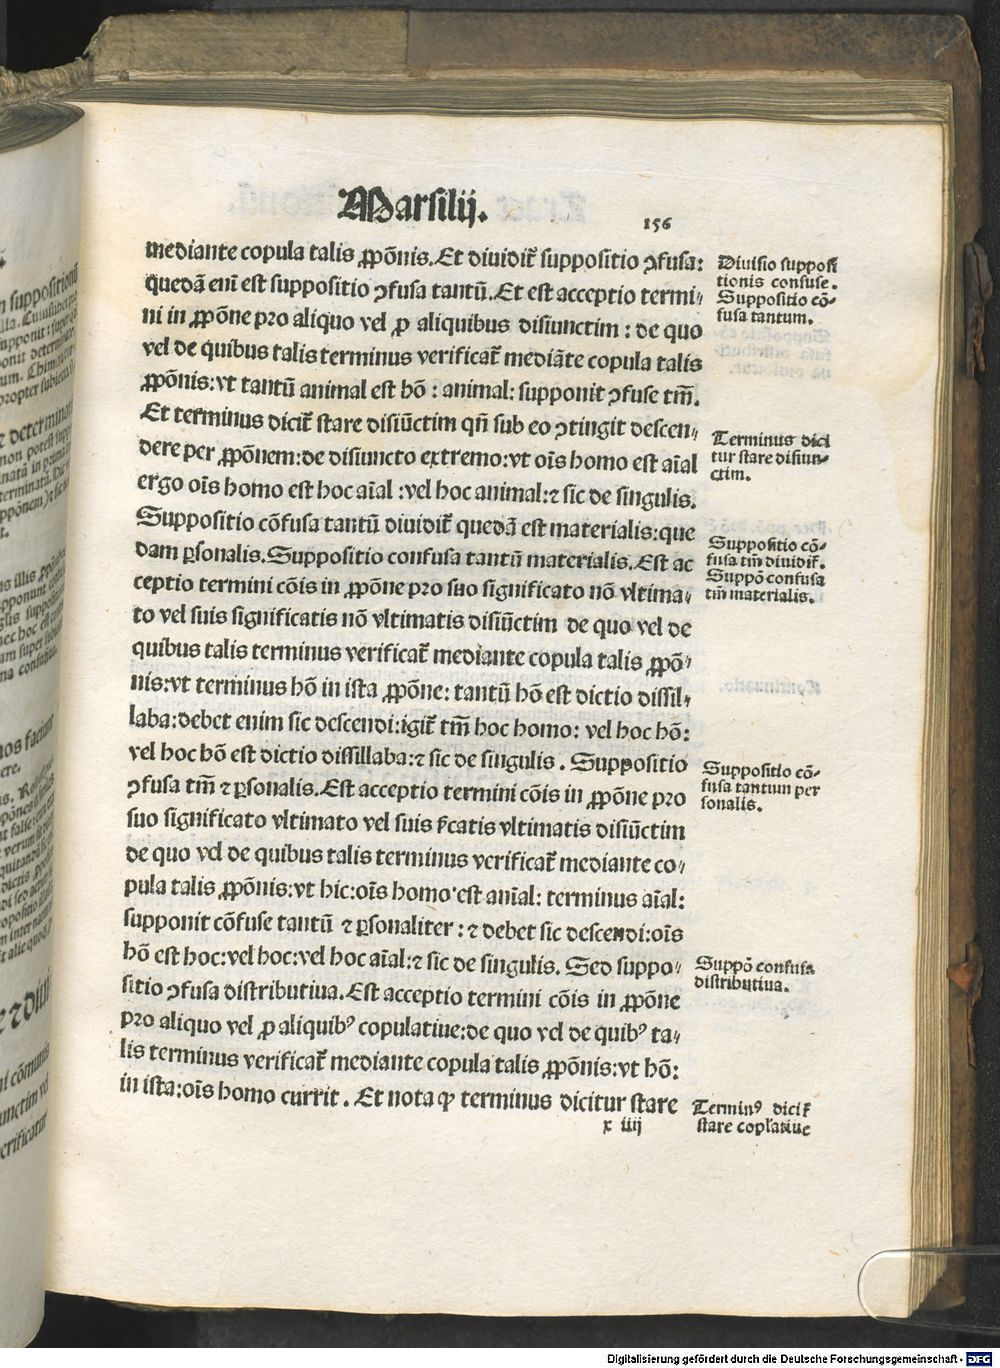 Marsilij.
156
mediante copula talis ꝓpōnis. Et diuidit̄ suppositio ꝯfusa:
quedā eni̅ est suppositio ꝯfusa tantū. Et est acceptio termi⸗
ni in ꝓpōne pro aliquo vel ꝓ aliquibus disiunctim : de quo
vel de quibus talis terminus verificat̄ mediāte copula talis
ꝓpōnis: vt tantū animal est hō : animal: supponit ꝯfuse tm̄.
Et terminus dicit̄ stare disiūctim qn̄ sub eo ꝯtingit descen⸗
dere per ꝓpōnem: de disiuncto extremo: vt oīs homo est aīal
ergo oīs homo est hoc aīal : vel hoc animal: ⁊ sic de singulis.
Suppositio cōfusa tantū diuidit̄ quedā est materialis: que
dam ꝑsonalis. Suppositio confusa tantū materialis. Est ac
ceptio termini cōis in ꝓpōne pro suo significato nō vltima⸗
to vel suis significatis nō vltimatis disiūctim de quo vel de
quibus talis terminus verificat̄ mediante copula talis ꝓpō⸗
nis: vt terminus hō in ista ꝓpōne: tantū hō est dictio dissil⸗
laba: debet enim sic descendi: igit̄ tm̄ hoc homo: vel hoc hō:
vel hoc hō est dictio dissillaba: ⁊ sic de singulis. Suppositio
ꝯfusa tm̄ ⁊ ꝑsonalis. Est acceptio termini cōis in ꝓpōne pro
suo significato vltimato vel suis s̄catis vltimatis disiūctim
de quo vel de quibus talis terminus verificat̄ mediante co⸗
pula talis ꝓpōnis: vt hic: oīs homo est aīal: terminus aīal:
supponit cōfuse tantū ⁊ ꝑsonaliter : ⁊ debet sic descendi: oīs
hō est hoc: vel hoc: vel hoc aīal: ⁊ sic de singulis. Sed suppo⸗
sitio ꝯfusa distributiua. Est acceptio termini cōis in ꝓpōne
pro aliquo vel ꝓ aliquibꝰ copulatiue: de quo vel de quibꝰ ta⸗
lis terminus verificat̄ mediante copula talis ꝓpōnis: vt hō:
in ista: oīs homo currit. Et nota ꝙ terminus dicitur stare
x iiij
Diuisio supposi
tionis confuse.
Suppositio cō⸗
fusa tantum.
Terminus dici
tur stare disiun⸗
ctim.
Suppositio cō⸗
fusa tm̄ diuidit̄.
Suppō confusa
tm̄ materialis.
Suppositio cō⸗
fusa tantum per
sonalis.
Suppō confusa
distributiua.
Terminꝰ dicit̄
stare copl̄atiue
Digitalisierung gefördert durch die Deutsche Forschungsgemeinschaft - DFG